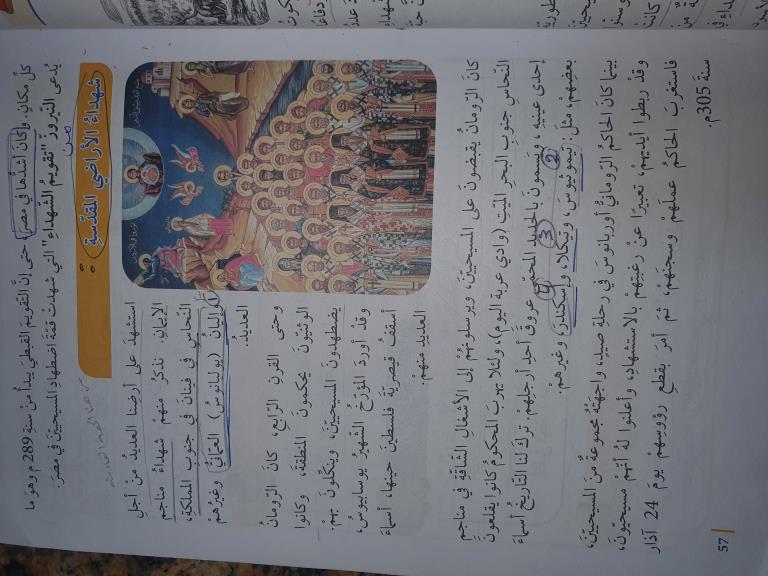 كلِّ مكانٍ. وكانَ أشدُّها في مصرَ حتى إنَّ التقويمَ القبطيَّ يبدأُ من سنة 289 م وهوَ ما
يُدعى النيروز "تقويمُ الشّهداءِ" التي شهدتْ قمّةَ اضطهادِ المسيحيّينَ في مصرَ.
من
شهداءُ الأراضي المقدّسةِ
استشهدَ على أرضنا العديدُ من أجلِ
الإيمانِ. نذكرُ منهمْ شهداءَ مناجمِ
النّحاسِ في فينانَ في جنوبِ المملكةِ،
إليانُ (يوليانوسُ) العَمّانيُّ وغيرُهمْ
العديدُ.
وحتى القرنِ الرّابعِ، كانَ الرّومانُ
الوثنيّونَ يحكمونَ المنطقةَ، وكانوا
يضطهدونَ المسيحيّينَ، وينكّلونَ بهمْ.
وقدْ أوردَ المؤرّخُ الشّهيرُ يوسابيوسُ،
أسقفُ قيصريّةِ فلسطينَ حينَها، أسماءَ
العديدِ منهمْ.
كانَ الرّومانُ يقبضونَ على المسيحيّينَ، ويرسلونَهُمْ إلى الأشغالِ الشّاقّةِ في مناجمِ
النّحاسِ جنوبَ البحرِ الميّتِ (وادي عربةَ اليوم)، ولئلا يهربَ المحكومُ كانوا يقلعونَ
إحدى عينيهِ، ويَسِمونَ بالحديدِ المحمّى عروقَ أحدِ أرجلِهمْ. تركَ لنا التّاريخُ أسماءَ
بعضِهمْ؛ مثلَ: تيموثيوسَ، وتيكلا، وإسكندرَ وغيرِهمْ.
2 3 4
بينما كانَ الحاكمُ الرّومانيُّ أوربانوسُ في رحلةِ صيدٍ، واجهتْهُ مجموعةٌ منَ المسيحيّينَ،
وقدْ ربطوا أيديَهمْ، تعبيرًا عنْ رغبتِهمْ بالاستشهادِ، وأعلنوا لهُ أنّهمْ مسيحيّونَ،
فاستغربَ الحاكمُ عملَهمْ وسجنَهمْ، ثم أمرَ بقطعِ رؤوسِهمْ يومَ 24 آذار
سنة 305 م.
57